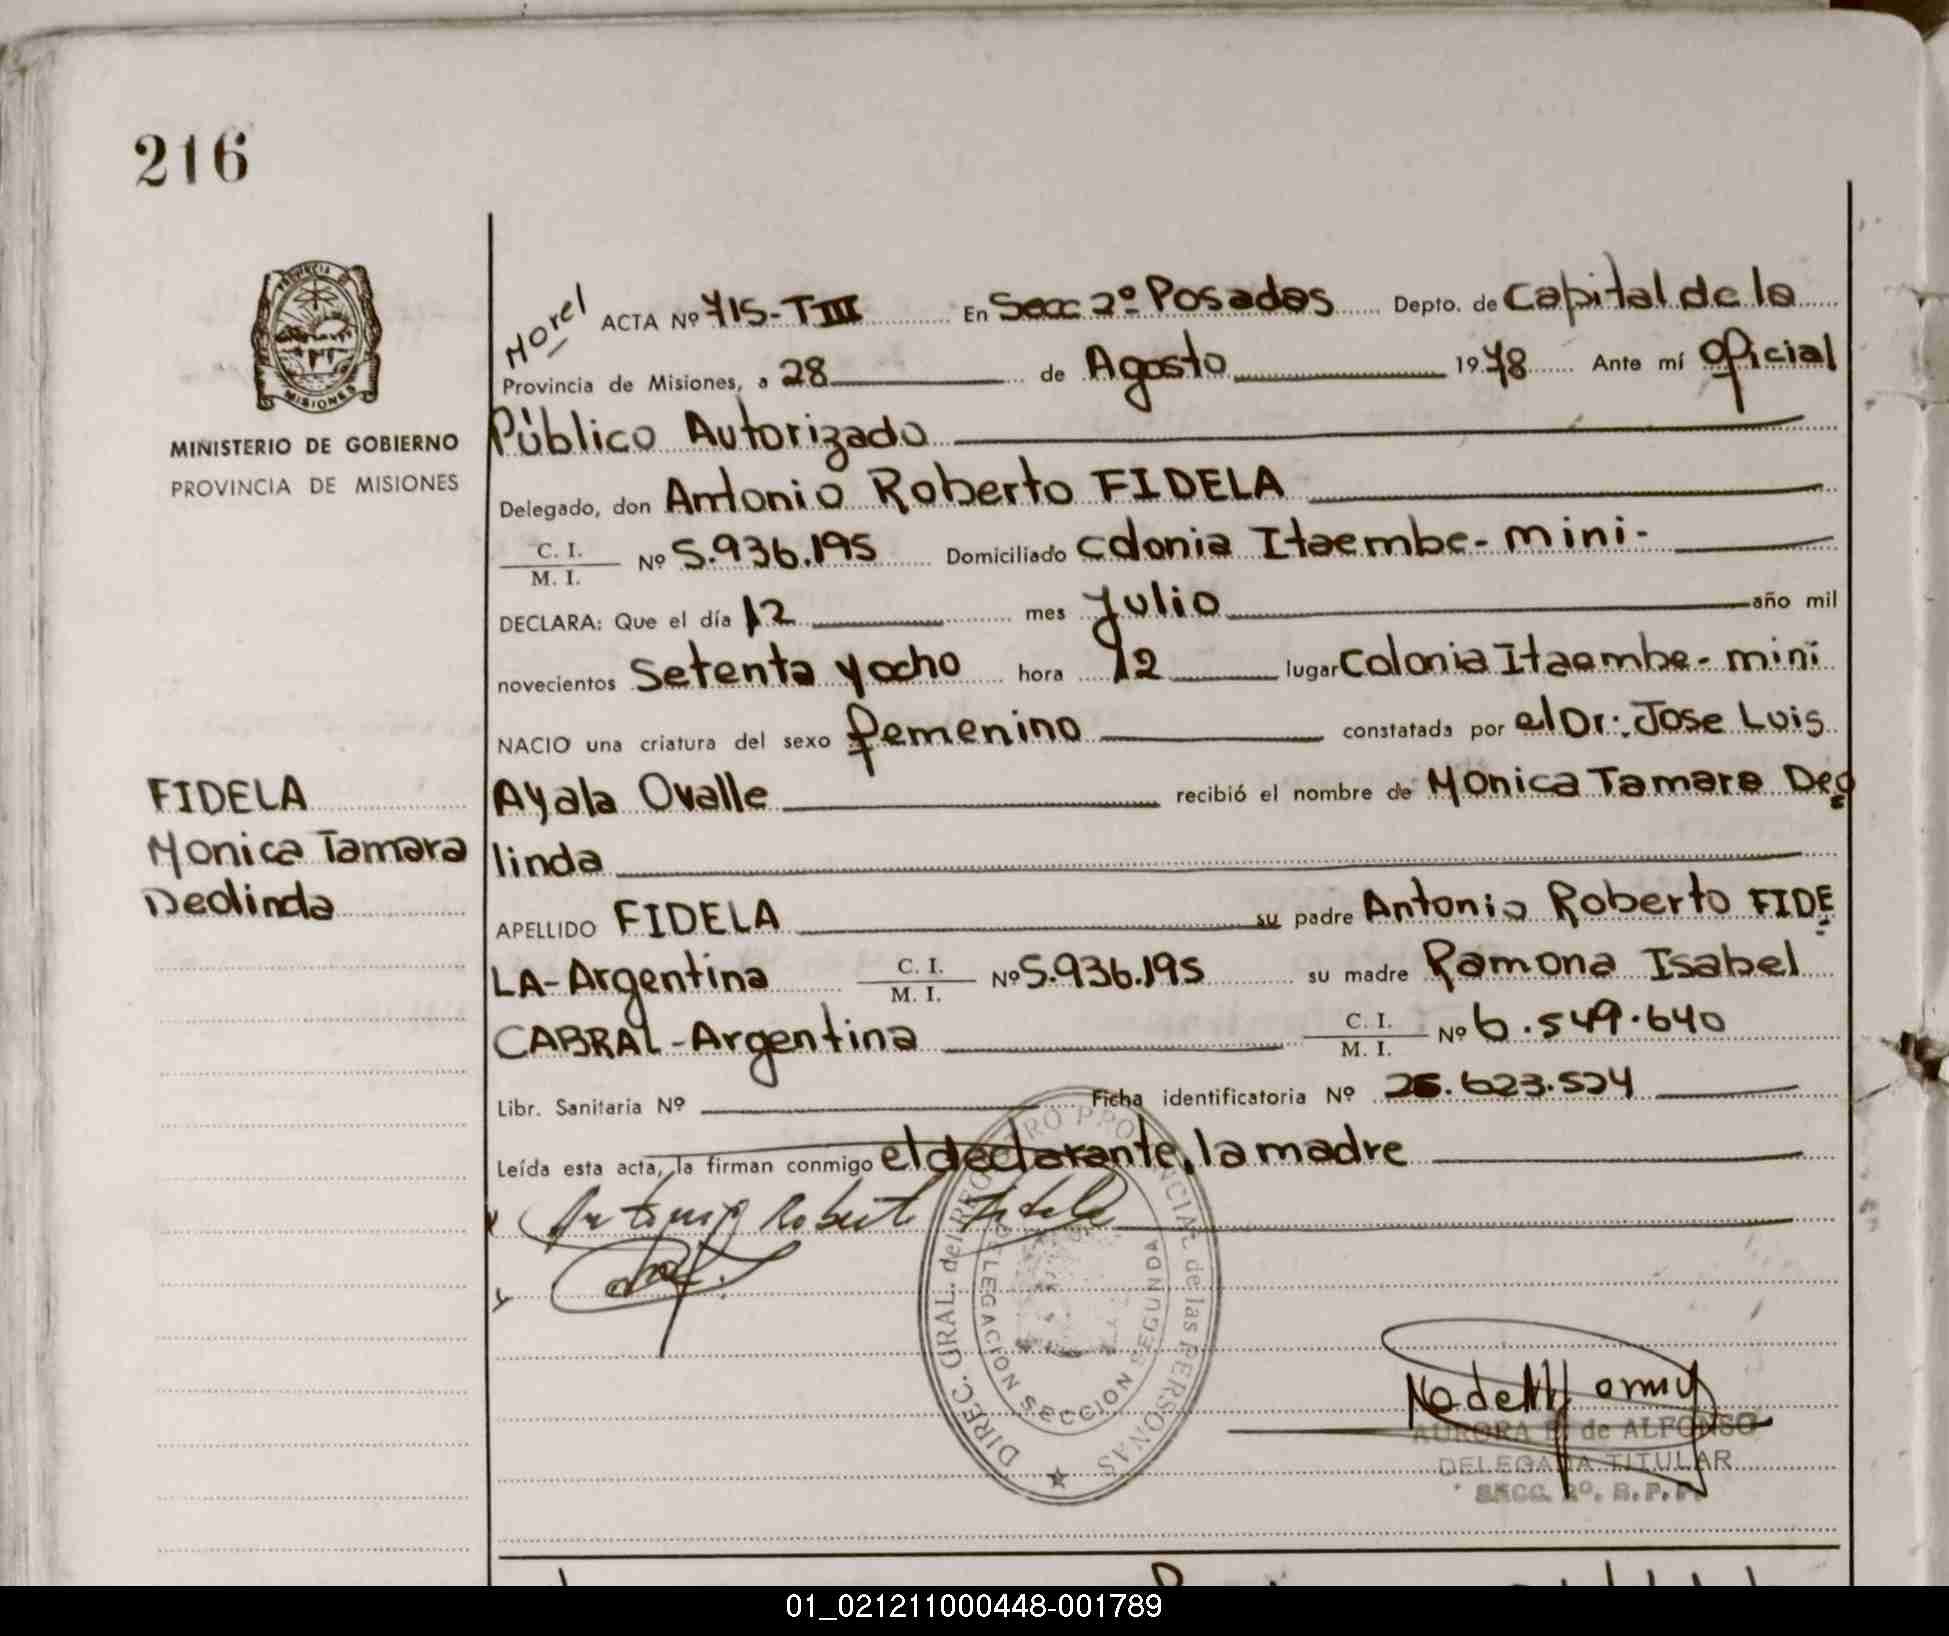 216
PROVINCIA DE
MISIONES
MINISTERIO DE GOBIERNO
PROVINCIA DE MISIONES
Morel
ACTA Nº 715-TIII En Secc 2º Posadas Depto. de Capital de la
Provincia de Misiones, a 28 de Agosto 1978 Ante mí Oficial
Público Autorizado
Delegado, don Antonio Roberto FIDELA
C. I.
M. I. Nº 5.936.195 Domiciliado Colonia Itaembe-mini-
DECLARA: Que el día 12 mes Julio año mil
novecientos Setenta y ocho hora 12 lugar Colonia Itaembe-mini
NACIO una criatura del sexo femenino constatada por el Dr: Jose Luis
Ayala Ovalle recibió el nombre de Monica Tamara Deo
linda
FIDELA
Monica Tamara
Deolinda
APELLIDO FIDELA su padre Antonio Roberto FIDE
LA-Argentina C. I.
M. I. Nº 5.936.195 su madre Ramona Isabel
CABRAL-Argentina C. I.
M. I. Nº 6.549.640
Libr. Sanitaria Nº Ficha identificatoria Nº 26.623.524
Leída esta acta, la firman conmigo el declarante, la madre
Antonio Roberto Fidela
DIREC. GRAL. del REGISTRO PROVINCIAL de las PERSONAS
DELEGACION SECCION SEGUNDA
AURORA de ALFONSO
DELEGADA TITULAR
SECC. 2º. R.P.P.
01_021211000448-001789